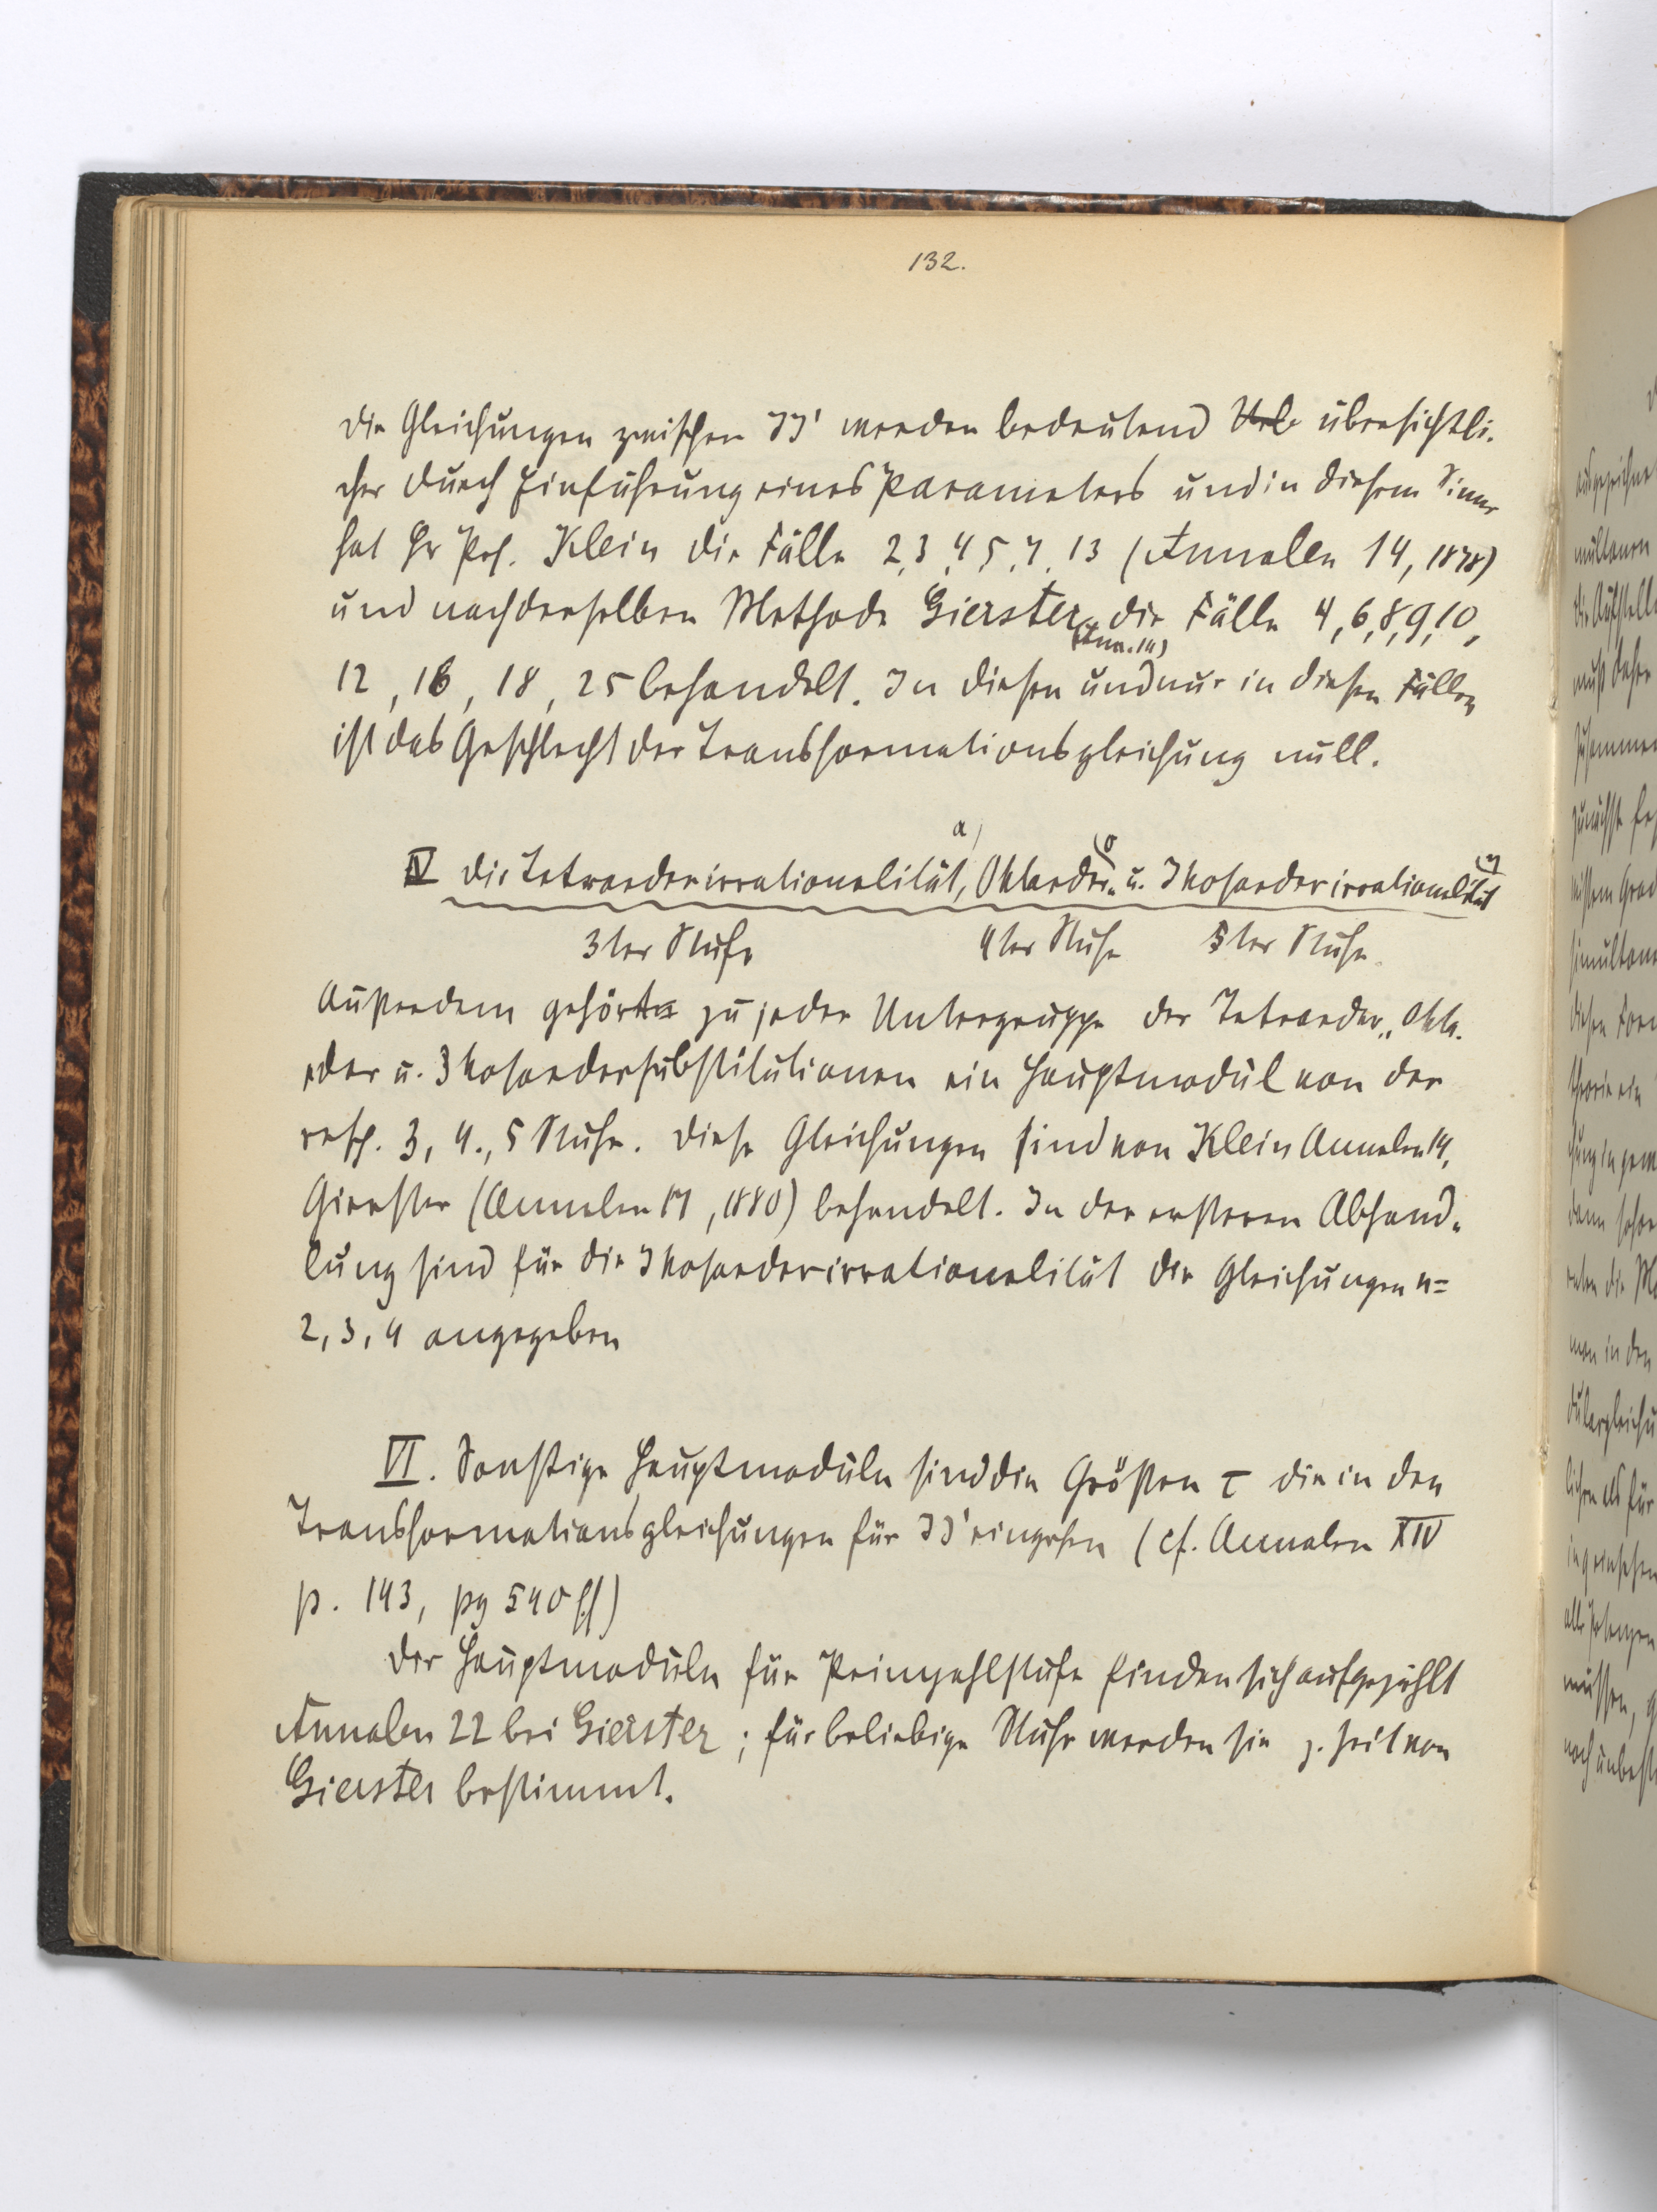 132.
die Gleichungen zwischen JJ' werden bedeutend übersichtli-
cher durch Einführung eines Parameters und in diesem Sinne
hat Hr Prof. Klein die Fälle 2, 3, 4, 5, 7, 13 (Annalen 14, 1878)
und nach derselben Methode Gierster (Ann. 14) die Fälle 4, 6, 8, 9, 10,
12, 16, 18, 25 behandelt. In diesen und nur in diesen Fällen
ist das Geschlecht der Transformationsgleichung null.
IV die Tetraederirrationalität, Oktaeder- u. Ikosaederirrationalität
3ter Stufe 4ter Stufe 5ter Stufe
Außerdem gehört zu jeder Untergruppe der Tetraeder-, Okta-
eder u. Ikosaedersubstitutionen ein Hauptmodul von der
resp. 3, 4., 5 Stufe. Diese Gleichungen sind von Klein Annalen 14,
Gierster (Annalen 17, 1880) behandelt. In der ersteren Abhand-
lung sind für die Ikosaederirrationalität die Gleichungen n=
2, 3, 4 angegeben
VI. Sonstige Hauptmoduln sind die Größen τ die in den
Transformationsgleichungen für JJ' eingehen (cf. Annalen XIV
p. 143, pg 540 ff)
Der Hauptmoduln für Primzahlstufe finden sich aufgezählt
Annalen 22 bei Gierster; für beliebige Stufe werden sie z. Zeit von
Gierster bestimmt.